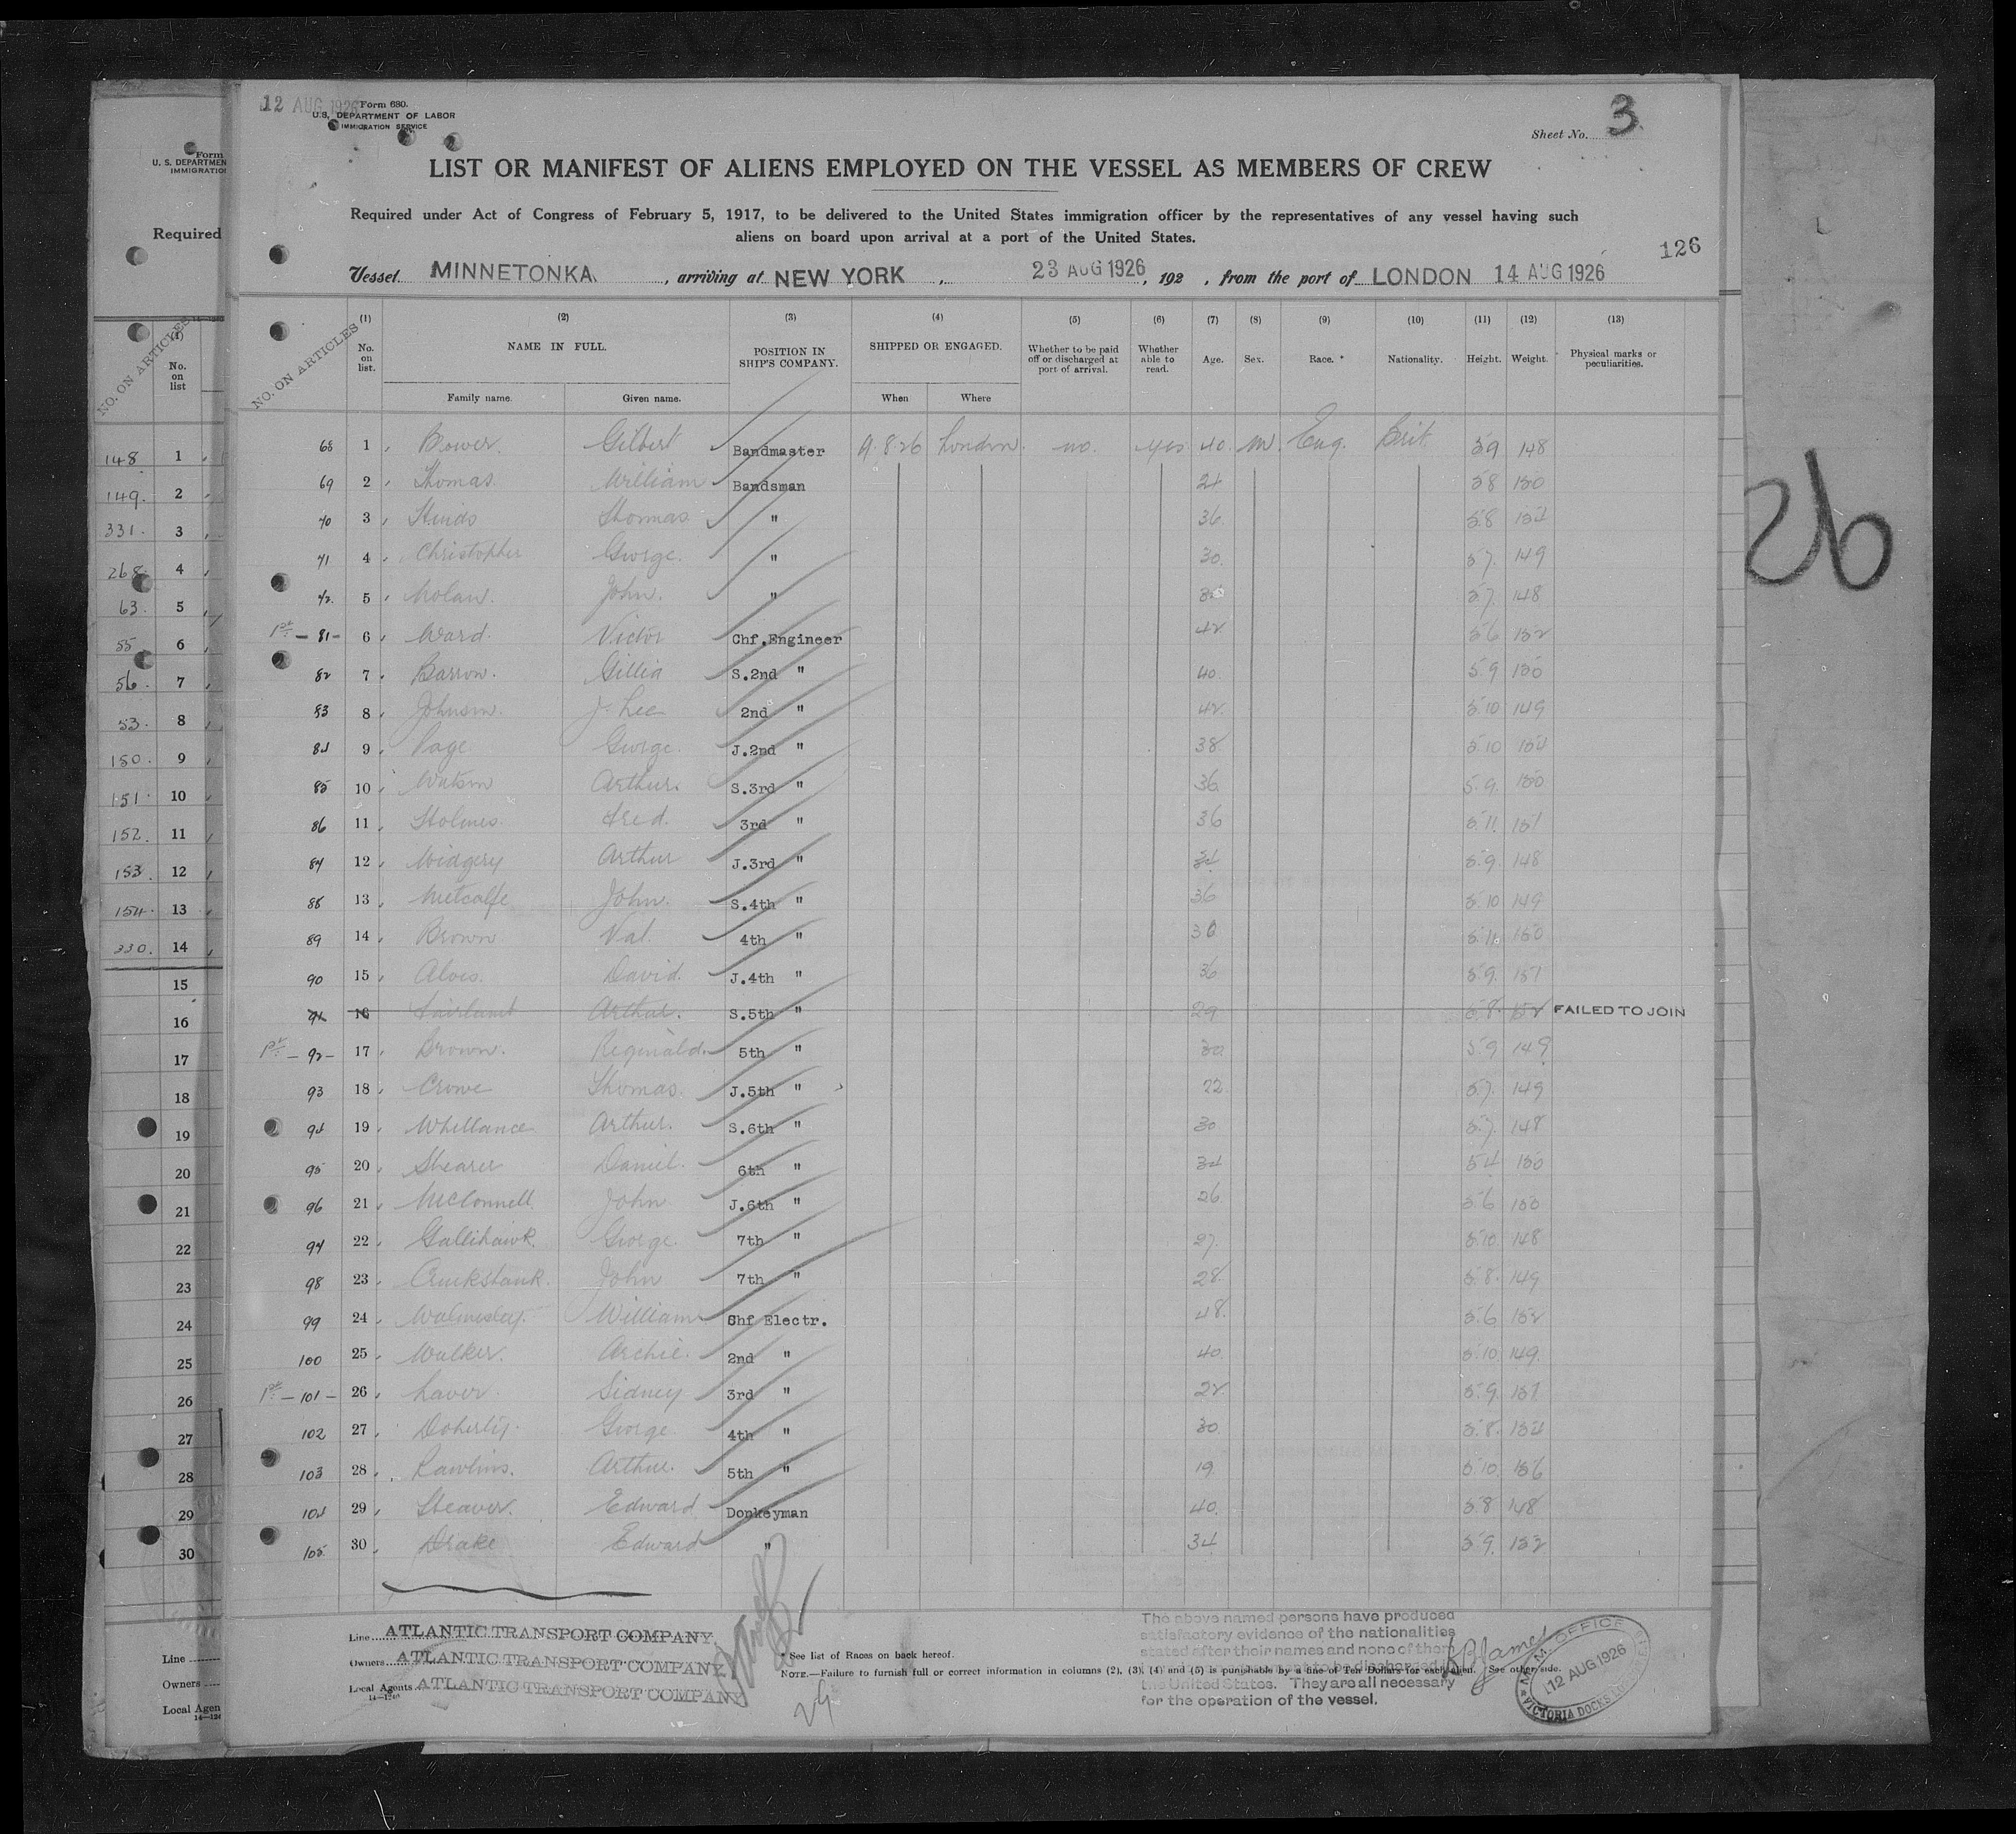 12 AUG 1926
Form 680.
U.S. DEPARTMENT OF LABOR
IMMIGRATION SERVICE
Sheet No. 3
LIST OR MANIFEST OF ALIENS EMPLOYED ON THE VESSEL AS MEMBERS OF CREW
Required under Act of Congress of February 5, 1917, to be delivered to the United States immigration officer by the representatives of any vessel having such
aliens on board upon arrival at a port of the United States.
126
Vessel MINNETONKA, arriving at NEW YORK, 23 AUG 1926, 192 , from the port of LONDON 14 AUG 1926
NO. ON ARTICLES
(1) (2) (3) (4) (5) (6) (7) (8) (9) (10) (11) (12) (13)
No. on list. NAME IN FULL. POSITION IN SHIP'S COMPANY. SHIPPED OR ENGAGED. Whether to be paid off or discharged at port of arrival. Whether able to read. Age. Sex. Race.* Nationality. Height. Weight. Physical marks or peculiarities.
Family name. Given name. When Where
68 1 Bower. Gilbert Bandmaster 9.8.26 London. no. yes 40. M. Eng. Brit. 5.9 148
69 2 Thomas. William Bandsman 24 5.8 150
70 3 Hinds Thomas " 36. 5.8 154
71 4 Christopher George. " 30. 5.7. 149
72. 5 Nolan. John. " 5.7. 148
1st - 81 - 6 Ward. Victor Chf.Engineer 42 5.6 152
82 7 Barrow. S.2nd " 40. 5.9 150
83 8 Johnson. J. Lee 2nd " 42. 5.10 149
84 9 Page George. J.2nd " 38. 5.10 154
85 10 Watson Arthur. S.3rd " 36. 5.9. 150
86 11 Holmes. Fred. 3rd " 36 5.11. 151
87 12 Widgery Arthur J.3rd " 34 5.9. 148
88 13 Metcalfe John. S.4th " 36 5.10 149
89 14 Brown Val. 4th " 36 5.11. 150
90 15 David. J.4th " 36 5.9. 151
91 16 Arthur. S.5th " 29 5.8. 152 FAILED TO JOIN
1st - 92 - 17 Brown. Reginald. 5th " 30 5.9 149
93 18 Crowe Thomas. J.5th " 22 5.7. 149
94 19 Whittance Arthur. S.6th " 30 5.7. 148
95 20 Shearer Daniel. 6th " 34 5.4 150
96 21 McConnell John J.6th " 26 5.6 150
97 22 Gallihawk. George. 7th " 27. 5.10. 148
98 23 Cruikshank. John 7th " 28. 5.8. 149
99 24 Walmesley. William Chf Electr. 48. 5.6 152
100 25 Walker. Archie. 2nd " 40. 5.10. 149.
1st - 101 - 26 Laver. Sidney 3rd " 22. 5.9 151
102 27 Doherty. George 4th " 30. 5.8. 154
103 28 Rawlins. Arthur. 5th " 19. 5.10. 156
104 29 Edward Donkeyman 40. 5.8 148
105. 30 Drake Edward " 34 5.9. 152
Line ATLANTIC TRANSPORT COMPANY
Owners ATLANTIC TRANSPORT COMPANY
Local Agents ATLANTIC TRANSPORT COMPANY
14—1240
* See list of Races on back hereof.
NOTE.—Failure to furnish full or correct information in columns (2), (3), (4) and (5) is punishable by a fine of Ten Dollars for each alien. See other side.
29
The above named persons have produced
satisfactory evidence of the nationalities
stated after their names and none of them
to be discharged in
the United States. They are all necessary
for the operation of the vessel.
James
M.M. OFFICE
12 AUG 1926
VICTORIA DOCKS
26
Form
U. S. DEPARTMEN
IMMIGRATIO
Required
NO. ON ARTICLES
No. on list
148 1
149. 2
331. 3
268. 4
63. 5
55 6
56. 7
53. 8
150. 9
151. 10
152. 11
153. 12
154. 13
330. 14
15
16
17
18
19
20
21
22
23
24
25
26
27
28
29
30
Line
Owners
Local Agen
14—124